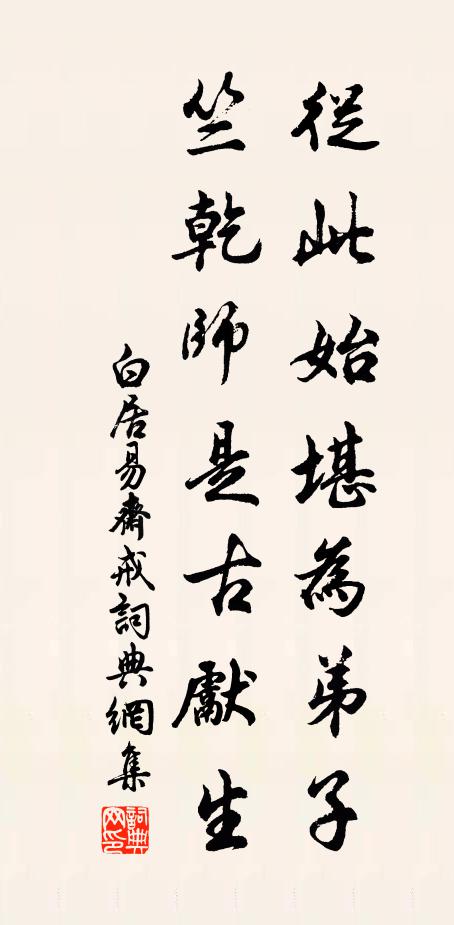 從此始堪為弟子
竺乾師是古獻生
白居易齋戒詞典網集
詞典网印